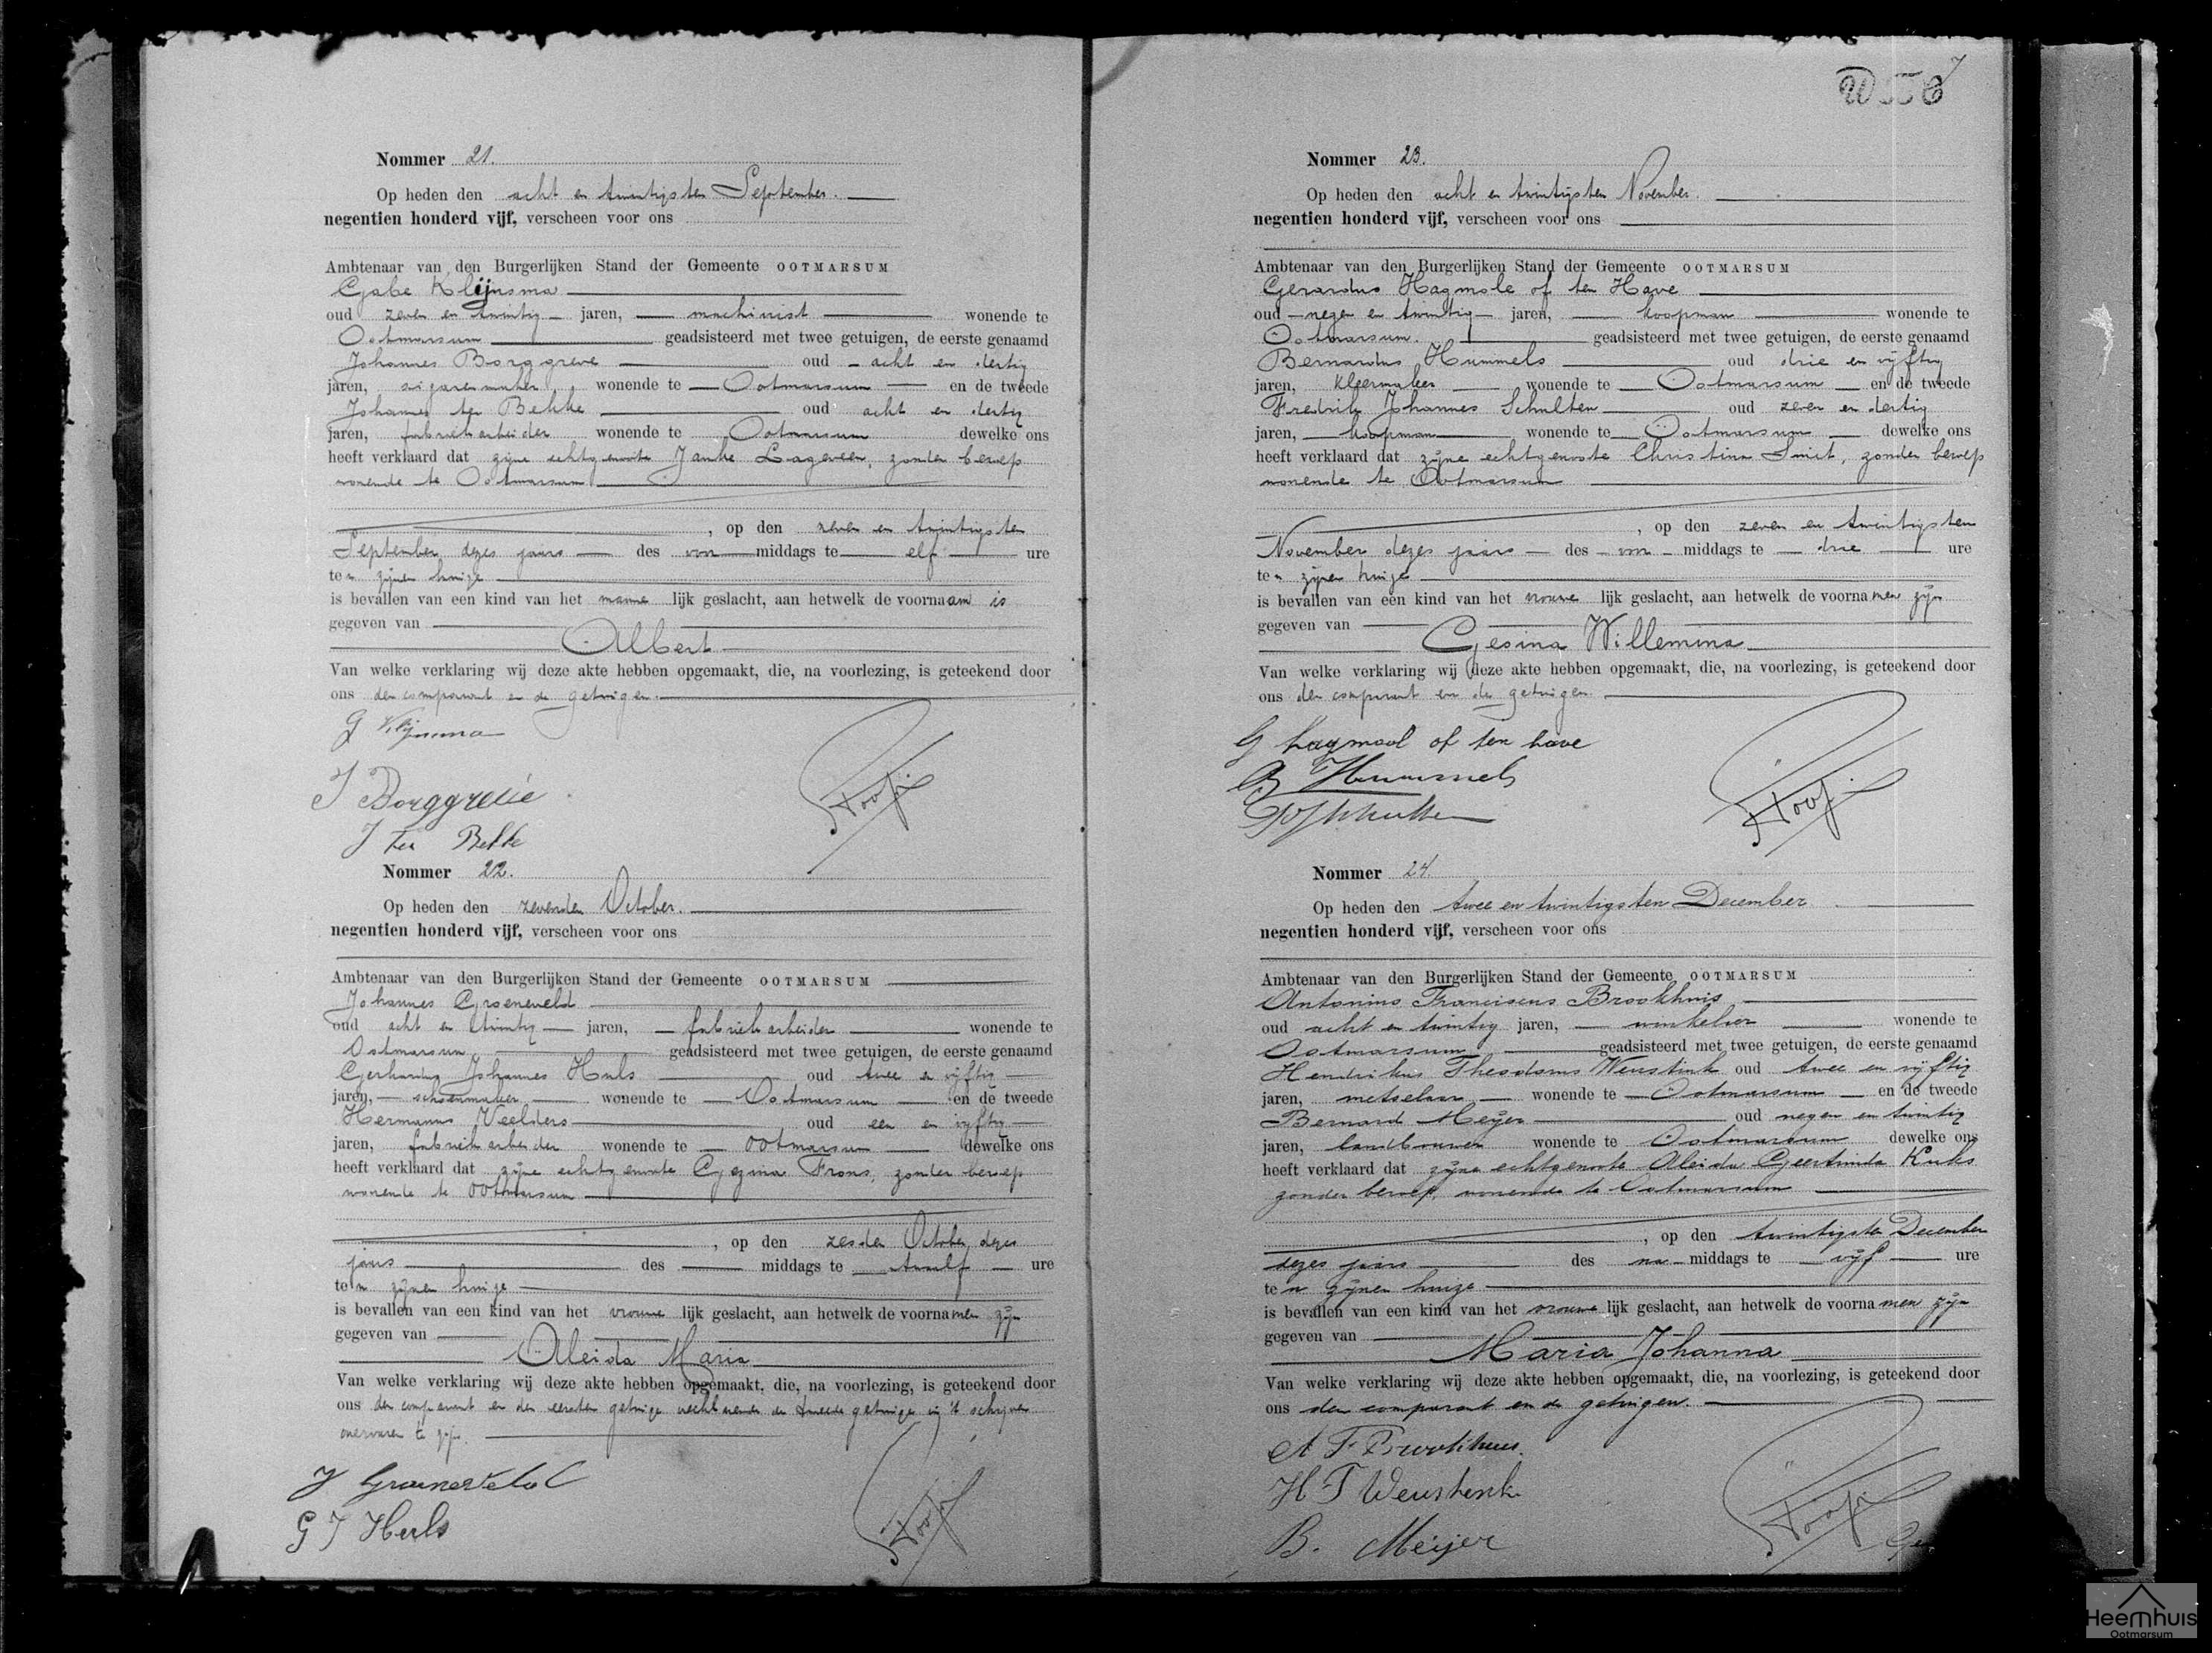 Nommer 21.
Op heden den acht en twintigsten September.
negentien honderd vijf, verscheen voor ons
Ambtenaar van den Burgerlijken Stand der Gemeente OOTMARSUM
Gabe Kleijnsma
oud zeven en twintig jaren, machinist wonende te
Ootmarsum geadsisteerd met twee getuigen, de eerste genaamd
Johannes Borggreve oud acht en dertig
jaren, sigarenmaker wonende te Ootmarsum en de tweede
Johannes ter Bekke oud acht en dertig
jaren, fabriekarbeider wonende te Ootmarsum dewelke ons
heeft verklaard dat zijne echtgenoote Janke Lageveen, zonder beroep
wonende te Ootmarsum
, op den zeven en twintigsten
September dezes jaars des voor middags te elf ure
te n zijnen huize
is bevallen van een kind van het manne lijk geslacht, aan hetwelk de voornaam is
gegeven van
Albert
Van welke verklaring wij deze akte hebben opgemaakt, die, na voorlezing, is geteekend door
ons den comparant en de getuigen.
G Kleijnsma
J Borggreve
J ter Bekke
Nommer 22.
Op heden den zevenden October.
negentien honderd vijf, verscheen voor ons
Ambtenaar van den Burgerlijken Stand der Gemeente OOTMARSUM
Johannes Groeneveld
oud acht en twintig jaren, fabriekarbeider wonende te
Ootmarsum geadsisteerd met twee getuigen, de eerste genaamd
Gerhardus Johannes Huls oud twee en vijftig
jaren, schoenmaker wonende te Ootmarsum en de tweede
Hermanus Veelders oud een en vijftig
jaren, fabriekarbeider wonende te Ootmarsum dewelke ons
heeft verklaard dat zijne echtgenoote Gezina Frons, zonder beroep
wonende te Ootmarsum
, op den zesden October dezes
jaars des middags te twaalf ure
te n zijnen huize
is bevallen van een kind van het vrouwe lijk geslacht, aan hetwelk de voornamen zijn
gegeven van
Aleida Maria
Van welke verklaring wij deze akte hebben opgemaakt, die, na voorlezing, is geteekend door
ons den comparant en den eersten getuige verklarende de tweede getuige in 't schrijven
onervaren te zijn.
J Groeneveld
G J Huls
Nommer 23.
Op heden den acht en twintigsten November.
negentien honderd vijf, verscheen voor ons
Ambtenaar van den Burgerlijken Stand der Gemeente OOTMARSUM
Gerardus Hagmole of ten Have
oud negen en twintig jaren, koopman wonende te
Ootmarsum. geadsisteerd met twee getuigen, de eerste genaamd
Bernardus Hummels oud drie en vijftig
jaren, kleermaker wonende te Ootmarsum en de tweede
Fredrik Johannes Schulten oud zeven en dertig
jaren, koopman wonende te Ootmarsum dewelke ons
heeft verklaard dat zijne echtgenoote Christina Smit, zonder beroep
wonende te Ootmarsum
, op den zeven en twintigsten
November dezes jaars des voor middags te drie ure
te n zijnen huize
is bevallen van een kind van het vrouwe lijk geslacht, aan hetwelk de voornamen zijn
gegeven van
Gesina Willemina
Van welke verklaring wij deze akte hebben opgemaakt, die, na voorlezing, is geteekend door
ons den comparant en de getuigen.
G hagmool of ten have
B Hummels
Nommer 24.
Op heden den twee en twintigsten December
negentien honderd vijf, verscheen voor ons
Ambtenaar van den Burgerlijken Stand der Gemeente OOTMARSUM
Antonius Franciscus Brookhuis
oud acht en twintig jaren, winkelier wonende te
Ootmarsum geadsisteerd met twee getuigen, de eerste genaamd
Hendrikus Theodorus Weustink oud twee en vijftig
jaren, metselaar wonende te Ootmarsum en de tweede
Bernard Meijer oud negen en twintig
jaren, landbouwer wonende te Ootmarsum dewelke ons
heeft verklaard dat zijne echtgenoote Aleida Geertruida Kuks
zonder beroep, wonende te Ootmarsum
, op den twintigsten December
dezes jaars des na middags te vijf ure
te n zijnen huize
is bevallen van een kind van het vrouwe lijk geslacht, aan hetwelk de voornamen zijn
gegeven van
Maria Johanna
Van welke verklaring wij deze akte hebben opgemaakt, die, na voorlezing, is geteekend door
ons den comparant en de getuigen.
A F Brookhuis.
H T Weustink
B. Meijer
Heemhuis
Ootmarsum